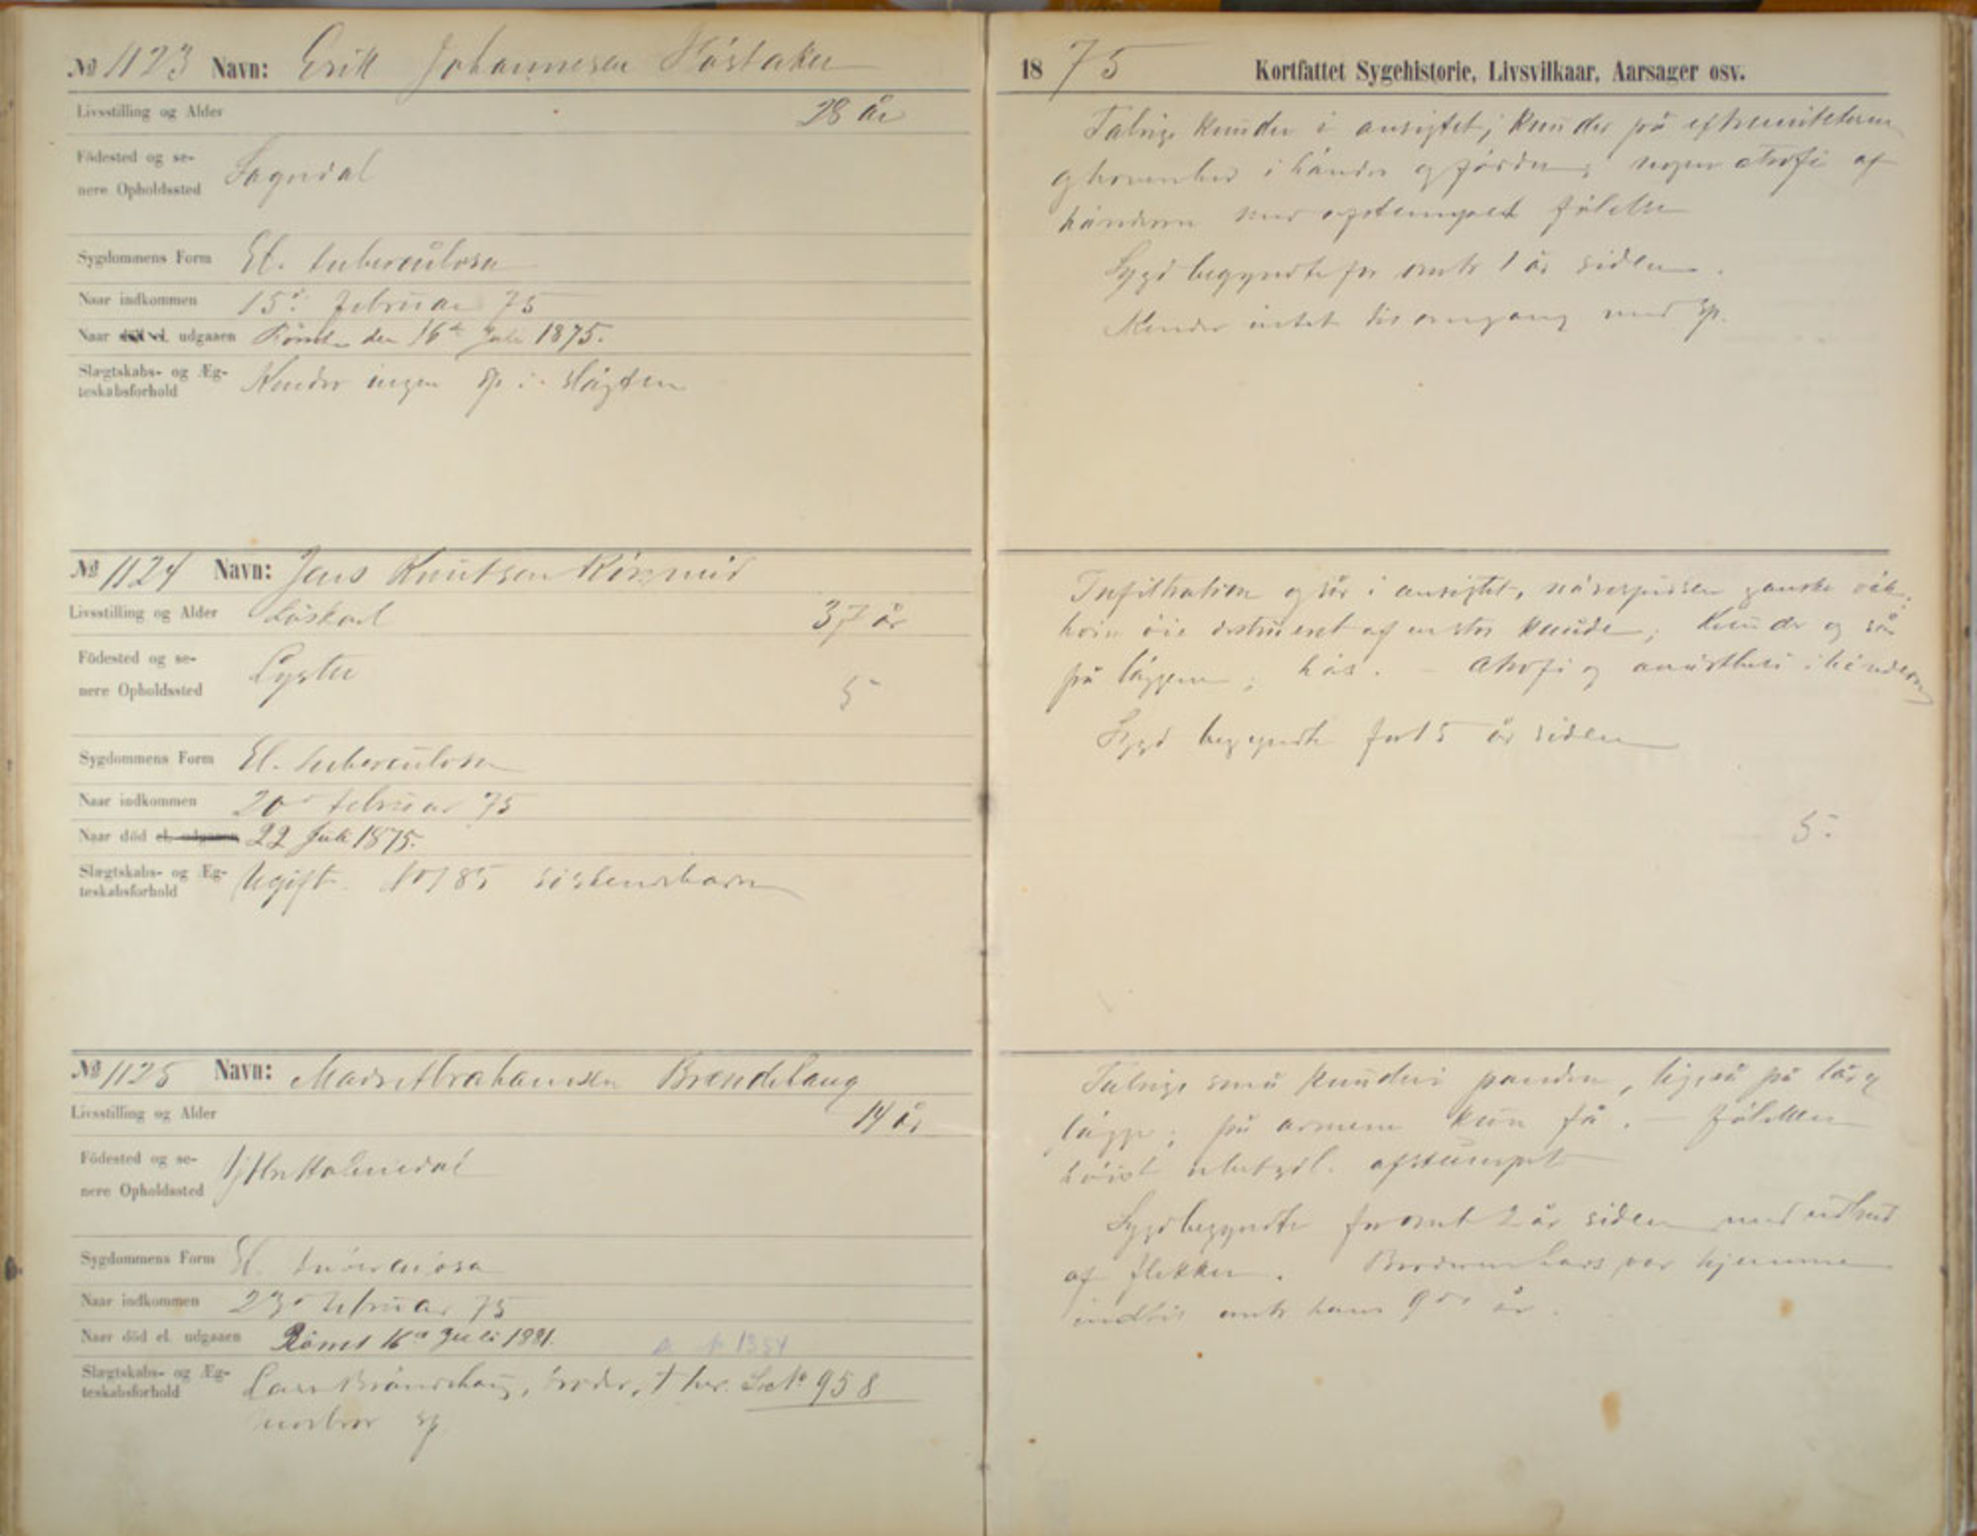 № 1123 Navn: Erik Johannesen
Livsstilling og Alder 28 år
Födested og se-
nere Opholdssted Sogndal
Sygdommens Form El. tuberculosa
Naar indkommen 15 februar 75
Naar död el. udgaaen Römt den 16 Juli 1875.
Slægtskabs- og Æg-
teskabsforhold Kender ingen sp. i slägten
№ 1124 Navn: Jens Knutsen
Livsstilling og Alder Löskarl 37 år
Födested og se-
nere Opholdssted Lyster 5
Sygdommens Form El. tuberculosa
Naar indkommen 20 februar 75
Naar död el. udgaaen 22 Juli 1875.
Slægtskabs- og Æg-
teskabsforhold Ugift. No 785 söskendebarn
№ 1125 Navn: Mads Abrahamsen Brendehaug
Livsstilling og Alder 14 år
Födested og se-
nere Opholdssted Ytre Holmedal
Sygdommens Form El. tuberculosa
Naar indkommen 23 februar 75
Naar död el. udgaaen Römt 16 Juli 1881. 1354
Slægtskabs- og Æg-
teskabsforhold Lars Brändehaug, broder, † her. Se No 958
morbror sp
1875 Kortfattet Sygehistorie, Livsvilkaar, Aarsager osv.
Talrige knuder i ansigtet; knuder på extremiteterne
og hovenhed i händer og födder; nogen atrofi af
händerne med afstumpet fölelse
Sygd begyndte for omtr 1 år siden.
Kender intet til omgang med sp.
Infiltration og sår i ansigtet, näsespidsen ganske
höire öie destrueret af en stor knude; knuder og sår
på läggene; häs. - Atrofi og anästhesi i händerne
Sygd begyndte for 15 år siden
5.
Talrige små knuder i panden, ligeså på lår og
lägge; på armene kun få. - Fölelsen
höist ubetydl. afstumpet
Sygd begyndte for omt 2 år siden med udbrud
af flekker. Broderen Lars var hjemme
indtil omtr hans 9de år.